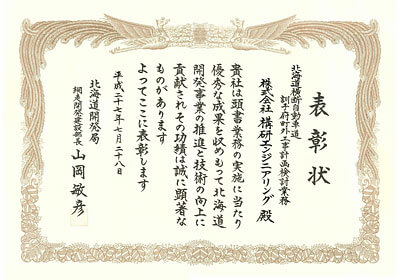 表彰状
北海道横断自動車道
訓子府町外工事計画検討業務
株式会社 構研エンジニアリング 殿
貴社は頭書業務の実施に当たり
優秀な成果を収めもって北海道
開発事業の推進と技術の向上に
貢献されその功績は誠に顕著な
ものがあります
よってここに表彰します
平成二十七年七月二十八日
北海道開発局
網走開発建設部長 山岡敏彦